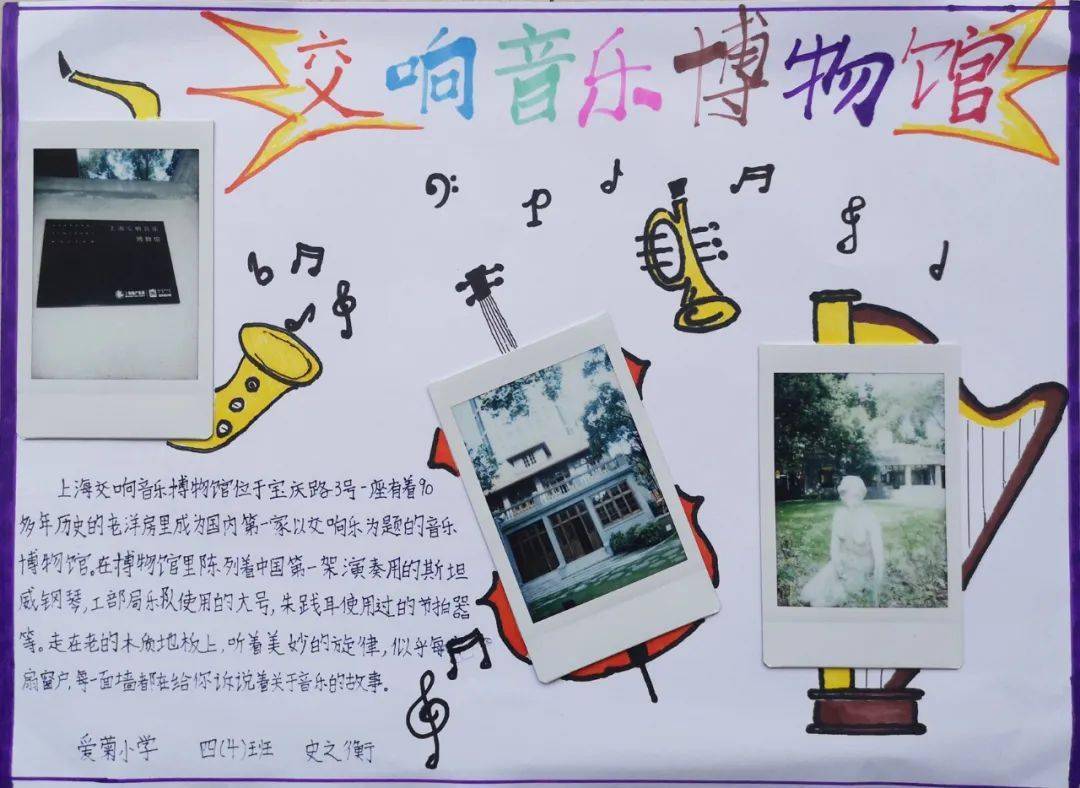 交响音乐博物馆
上海交响音乐
博物馆
上海交响音乐博物馆位于宝庆路3号一座有着90
多年历史的老洋房里成为国内第一家以交响乐为题的音乐
博物馆。在博物馆里陈列着中国第一架演奏用的斯坦
威钢琴,工部局乐队使用的大号,朱践耳使用过的节拍器
等。走在老的木质地板上,听着美妙的旋律,似乎每
扇窗户,每一面墙都在给你诉说着关于音乐的故事。
爱菊小学 四(4)班 史之衡